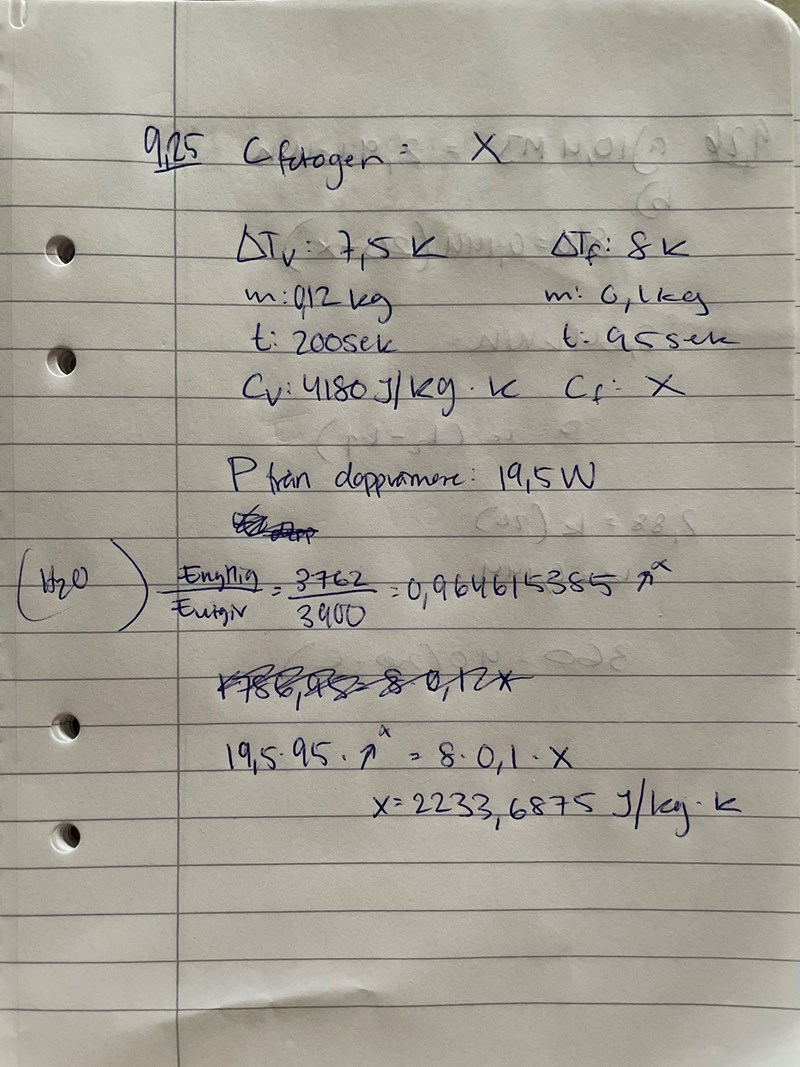 9,25 Cfotogen = X
ΔTv: 7,5 K ΔTf: 8 K
m: 0,12 kg m: 0,1 kg
t: 200 sek t: 95 sek
Cv: 4180 J/kg · K Cf: X
P från doppvärmare: 19,5 W
(H2O) Enyttig/Eutgiv = 3762/3900 = 0,964615385 ↗α
19,5 · 95 · ↗α = 8 · 0,1 · X
x = 2233,6875 J/kg · K